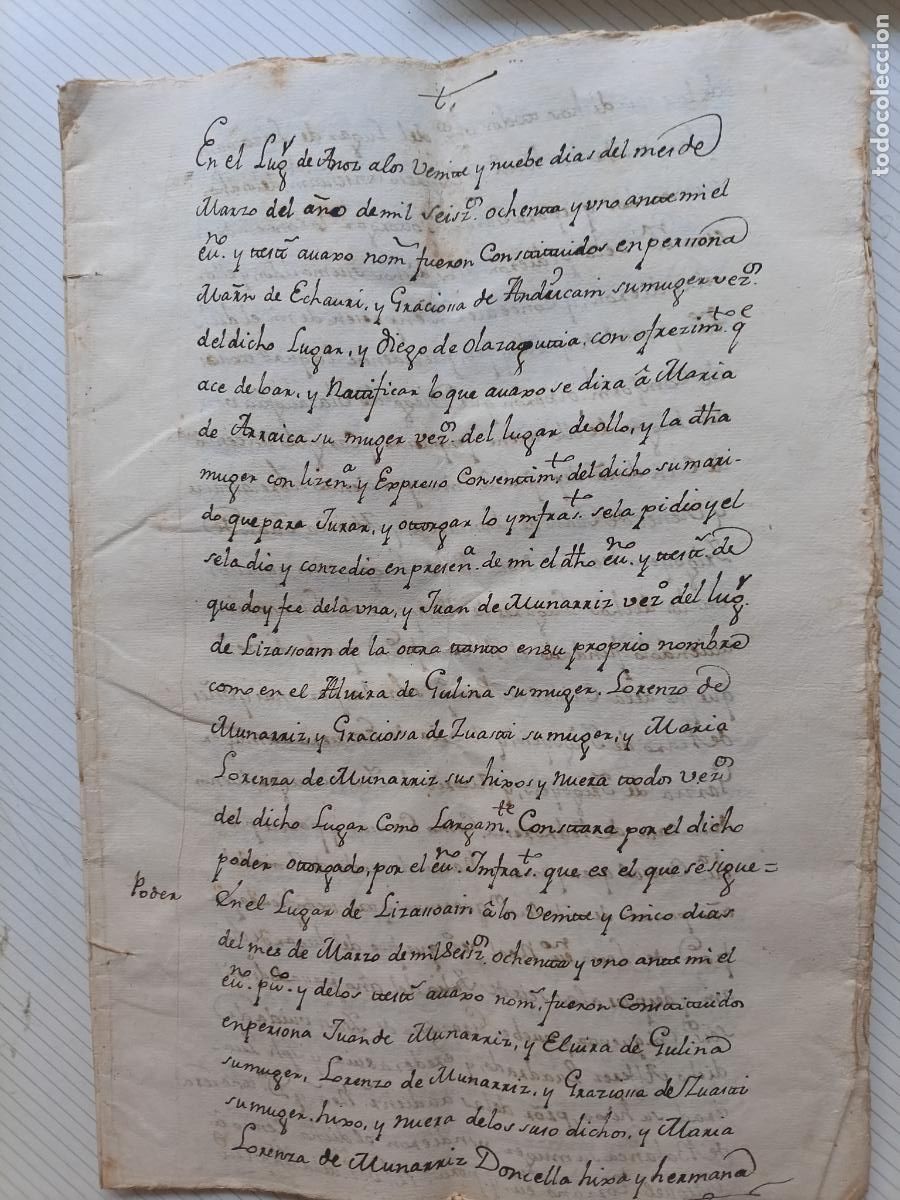 t.
En el Lugr de Anoz alos Veinte y nuebe dias del mes de
Marzo del año de mil Seisz.os ochenta y uno ante mi el
eu.no y testi.s avaxo nom.s fueron Constituidos en persona
Mar̃n de Echauri, y Graciossa de Andricain su muger vez.os
del dicho Lugar, y Diego de Olazagutia, con ofrezim.to q.e
ace de loar, y Rattificar lo que avaxo se dira â Maria
de Arraica su muger vez.os del lugar de ollo, y la dha
muger con lizen.a y Expresso Consentim.to del dicho su mari-
do que para Jurar, y ottorgar lo ynfras.to se la pidio y el
se la dio y conzedio en presen.a de mi el dho eu.no y testi.s de
que doy fee de la una, y Juan de Munarriz vez.o del lugr.
de Lizassoain de la otra tanto en su proprio nombre
como en el Alvira de Gulina su muger, Lorenzo de
Munarriz, y Graciossa de Zuasti su muger, y Maria
Lorenza de Munarriz sus hixos y Nuera todos vez.os
del dicho Lugar Como Largam.te Constara por el dicho
poder ottorgado, por el eu.no Infras.to que es el que se sigue=
Poder
En el Lugar de Lizassoain â los Veinte y Cinco dias
del mes de Marzo de mil Seisz.os ochenta y uno ante mi el
eu.no pu.co y de los testi.s avaxo nom.s fueron Constituidos
en persona Juan de Munarriz, y Elvira de Gulina
su muger, Lorenzo de Munarriz, y Graziossa de Zuasti
su muger, hixo, y nuera de los suso dichos, y Maria
Lorenza de Munarriz Doncella hixa y hermana
todocoleccion